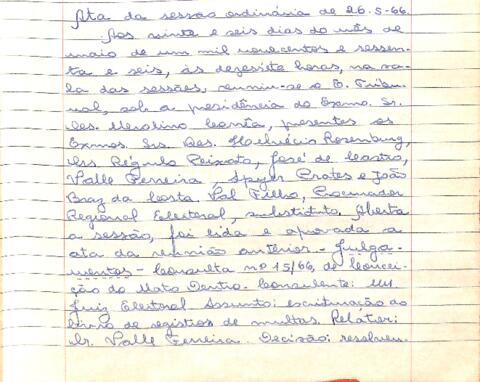 Ata da sessão ordinária de 26-5-66.
Aos vinte e seis dias do mês de
maio de um mil novecentos e sessen-
ta e seis, às dezessete horas, na sa-
la das sessões, reuniu-se o E. Tribu-
nal, sob a presidência do Exmo. Sr.
Des. Merolino Corrêa, presentes os
Exmos. Srs. Des. Helvécio Rosenburg,
Drs. Régulo Peixoto, José de Castro,
Valle Ferreira, Spyer Prates e João
Braz da Costa Val Filho, Procurador
Regional Eleitoral, substituto. Aberta
a sessão, foi lida e aprovada a
ata da reunião anterior - Julga-
mentos - Consulta nº 15/66, de Concei-
ção do Mato Dentro. Consulente: MM.
Juiz Eleitoral Assunto: escrituração do
livro de registros de multas. Relator:
Dr. Valle Ferreira. Decisão: resolveu.